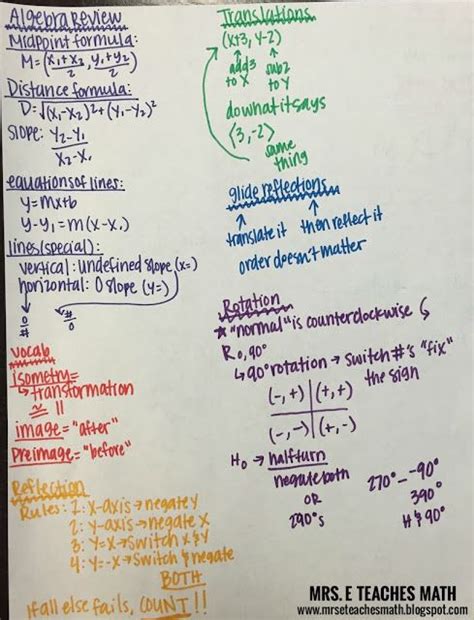 Algebra Review
Midpoint formula:
M=(x₁+x₂/2, y₁+y₂/2)
Distance formula:
D=√(x₁-x₂)²+(y₁-y₂)²
Slope: y₂-y₁/x₂-x₁
equations of lines:
y=mx+b
y-y₁=m(x-x₁)
lines (special):
vertical: undefined slope (x=)
horizontal: 0 slope (y=)
0/# #/0
Vocab
isometry=
↳transformation
≅ ||
image="after"
Preimage="before"
Reflection
Rules: 1: X-axis→negate y
2: y-axis→negate x
3: y=x→switch x & y
4: y=-x→switch & negate
BOTH
If all else fails, COUNT!!
Translations
(x+3, y-2)
add 3 sub 2
to X to Y
do what it says
⟨3,-2⟩
same
thing
glide reflections
translate it then reflect it
order doesn't matter
Rotation
★"normal" is counterclockwise
R₀,90°
↳90° rotation → switch #'s "fix"
the sign
(-,+) (+,+)
(-,-) (+,-)
H₀ → half turn
negate both
OR
2 90°s
270°--90°
390°
H & 90°
MRS. E TEACHES MATH
www.mrseteachesmath.blogspot.com